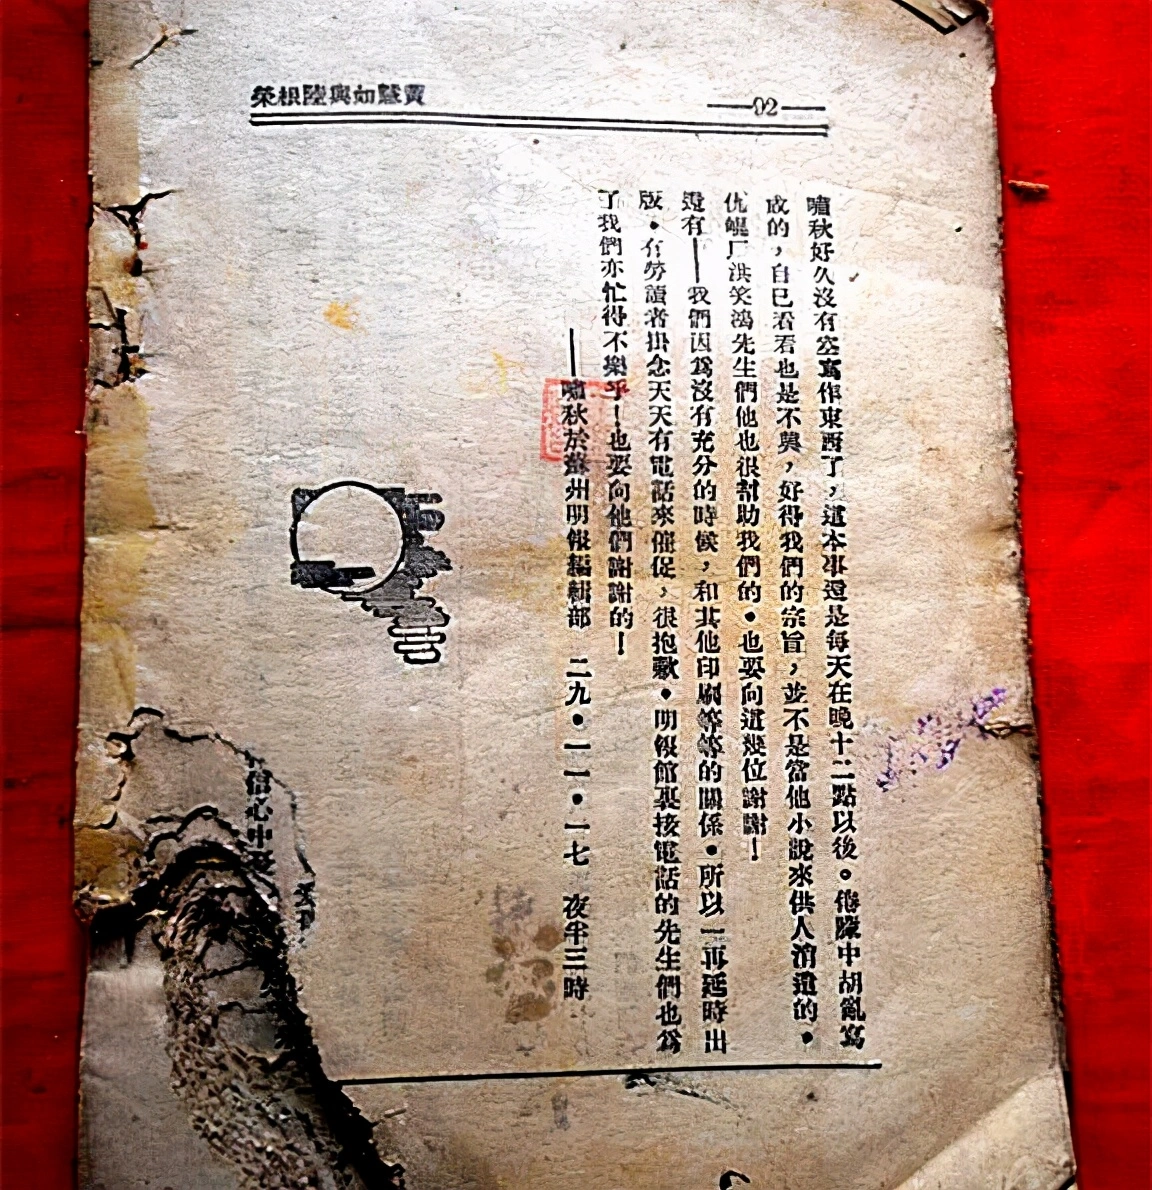 黃慧如與陸根榮
92
嘯秋好久沒有空寫作東西了，這本事還是每天在晚十二點以後。倦朦中胡亂寫
成的，自己看看也是不興，好得我們的宗旨，並不是當他小說來供人消遣的．
優 厂洪笑鴻先生們他也很幫助我們的．也要向這幾位謝謝！
還有——我們因爲沒有充分的時候，和其他印刷等等的關係．所以一再延時出
版．有勞讀者掛念天天有電話來催促，很抱歉．明報館裏接電話的先生們也爲
了我們亦忙得不樂乎！也要向他們謝謝的！
——嘯秋於蘇州明報編輯部　二九．一一．一七　夜半三時
信心中